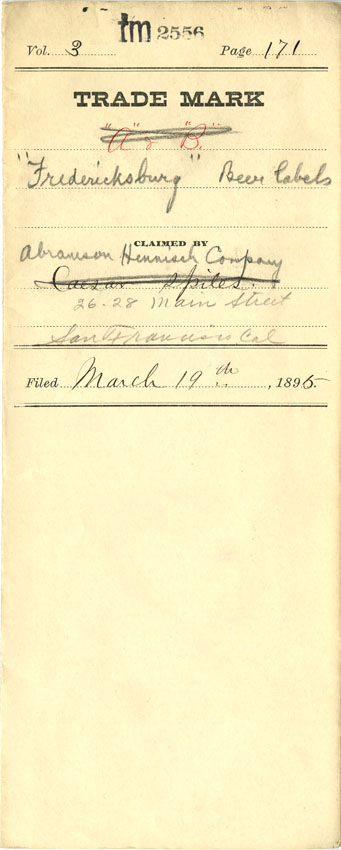 tm 2556
Vol. 3 Page 171
TRADE MARK
"A" & "B."
"Fredericksburg" Beer Labels
CLAIMED BY
Abramson Heunisch Company
Caesar Spiles.
26-28 Main Street
San Francisco Cal
Filed March 19th, 1895.